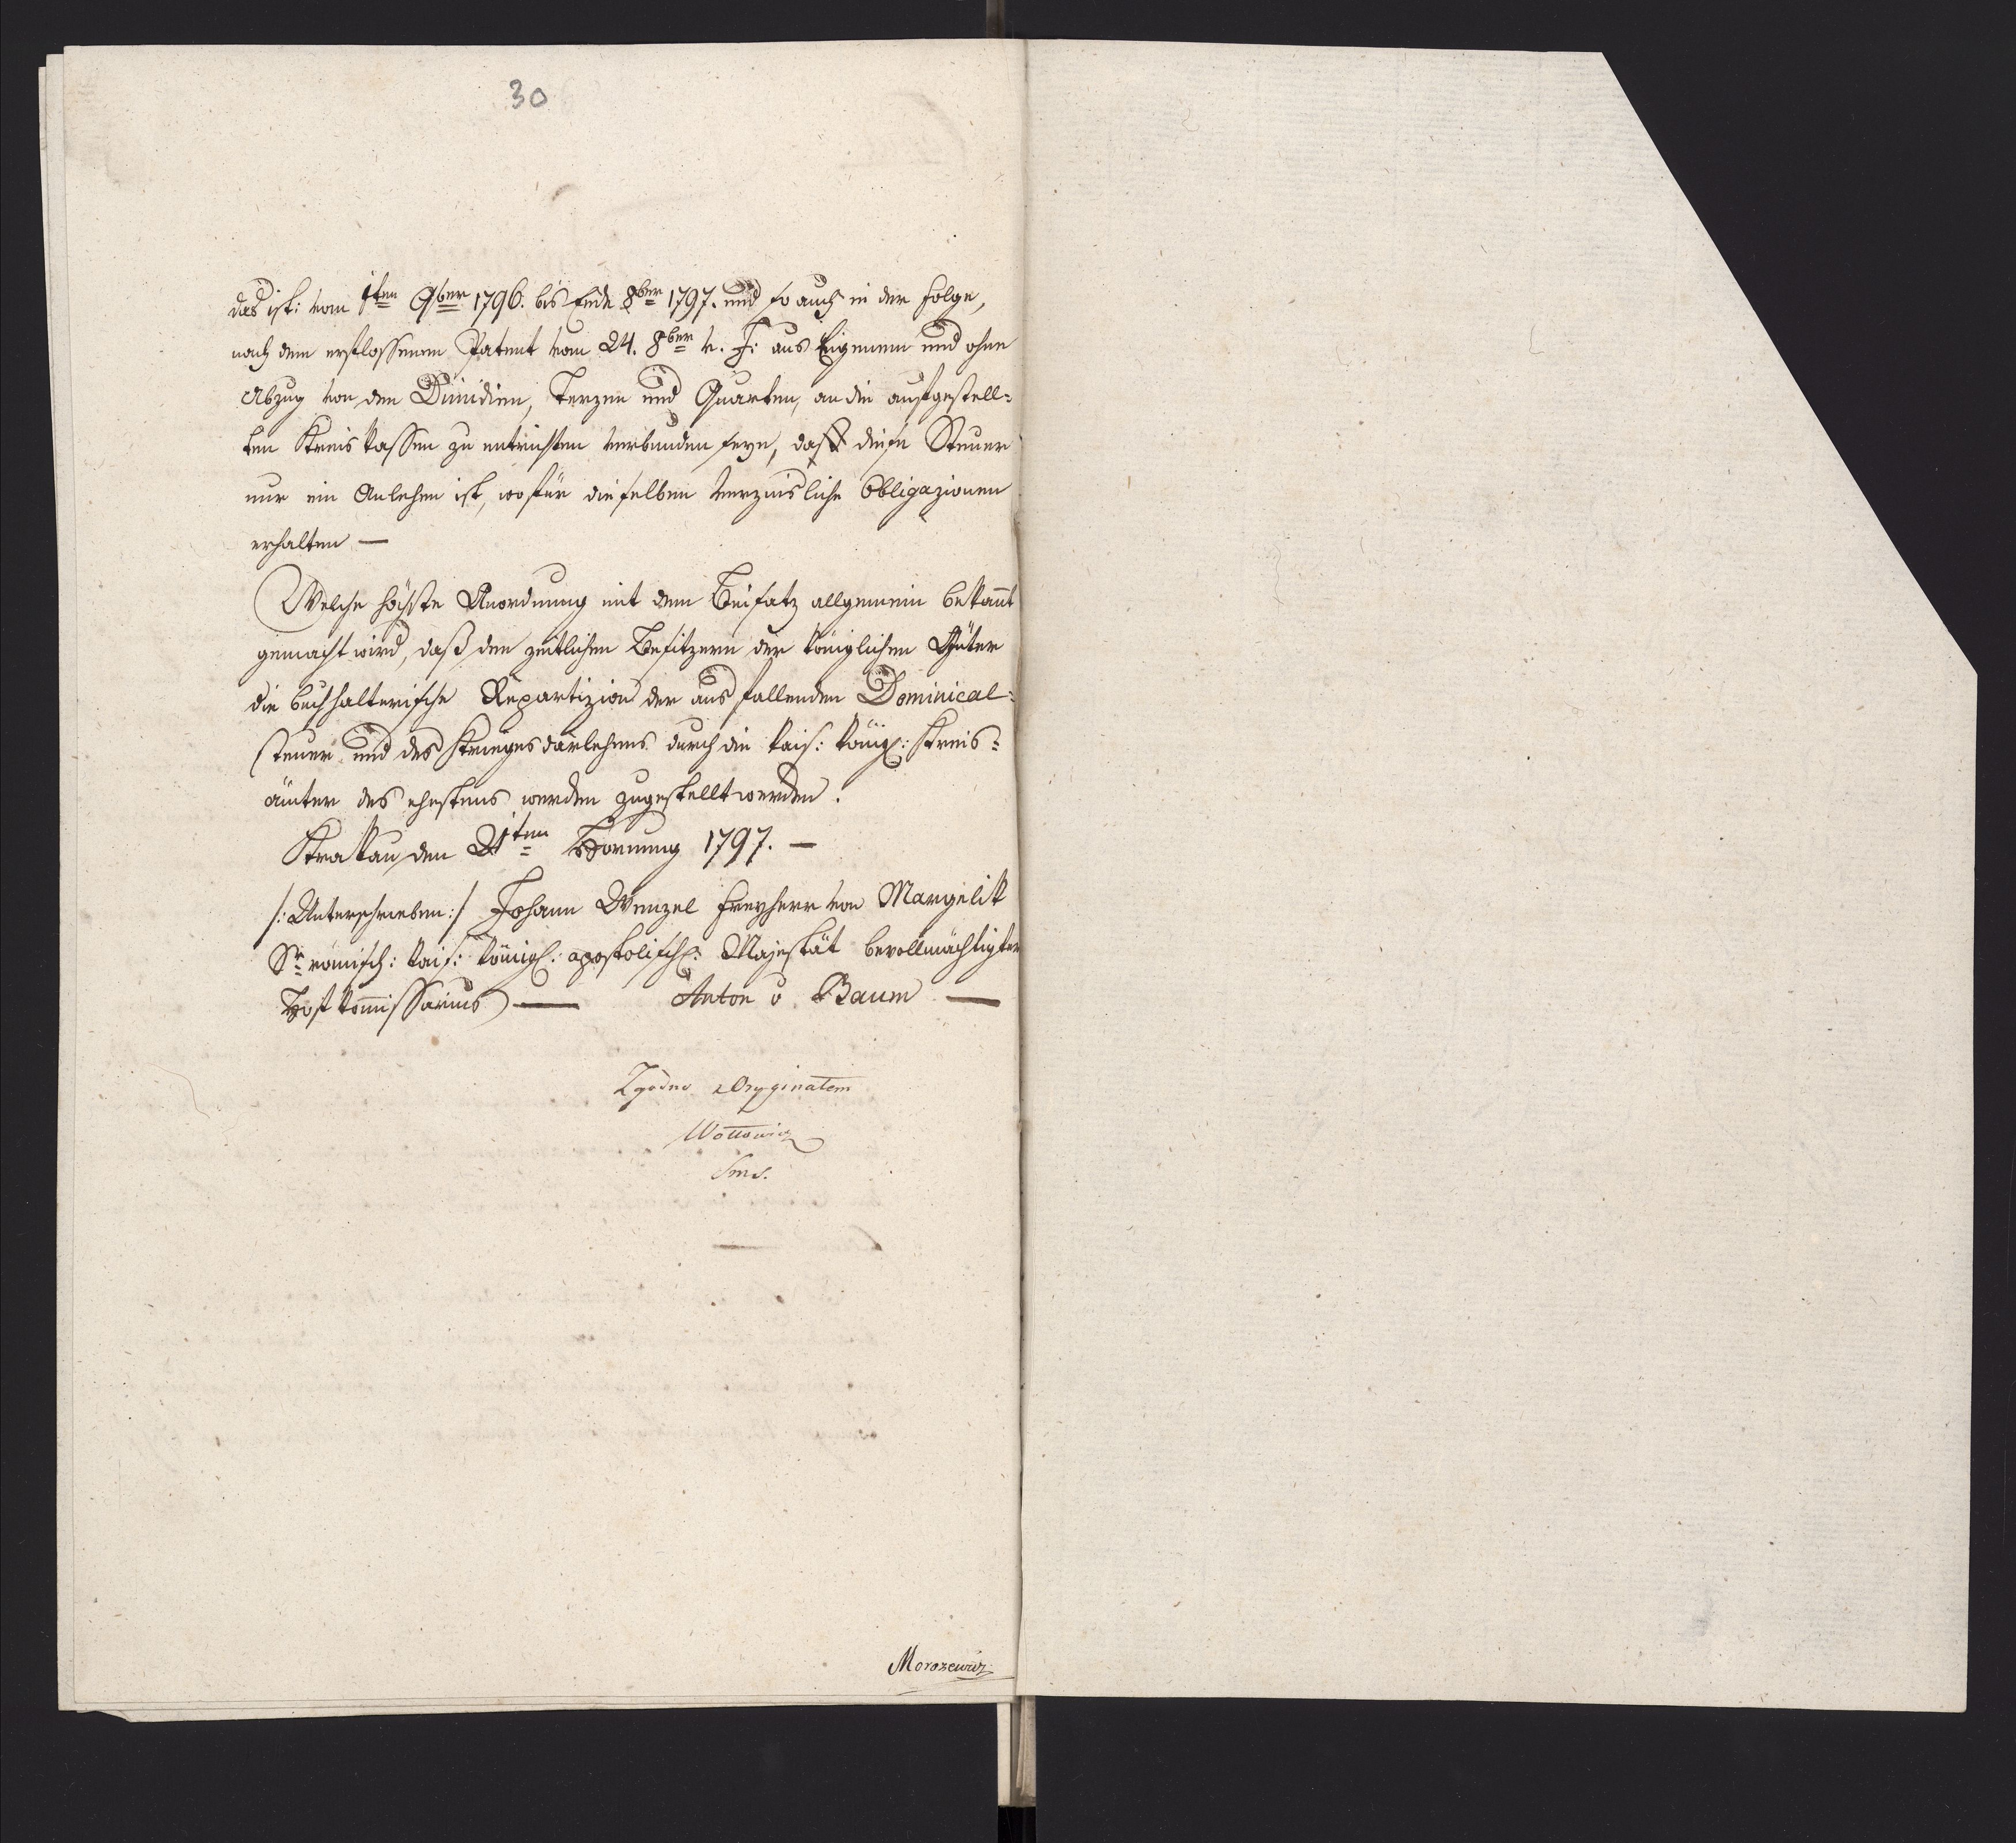 30
das ist: vom 1ten 9ber 1796. bis Ende 8ber 1797. und so auch in der Folge,
nach dem erflossenen Patent vom 24. 8ber v. J: aus Eigenem und ohne
Abzug von den Dimidien, Terzen und Quarten, an die aufgestell=
ten Kreiskassen zu entrichten verbunden seye, daß diese Steuer
nur ein Anlehen ist, wofür dieselben verzinsliche Obligazionen
erhalten —
Welche höchste Anordnung mit dem Beisatz allgemein bekannt
gemacht wird, daß den zeitlichen Besitzern der königlichen Güter
die buchhalterische Repartizion der aus fallenden Dominical=
steuer und des Kriegesdarlehens durch die kais: königl: Kreis=
ämter des ehestens werden zugestellt werden.
Krakau den 21ten Hornung 1797. —
/: Unterschrieben :/ Johann Wenzel Freyherr von Margelik
Sr römisch: kais: königl: apostolisch: Majestät bevollmächtigter
Hofkommissarius — Anton v Baum —
Zgodno z Oryginałem
Smd.
Morozewicz